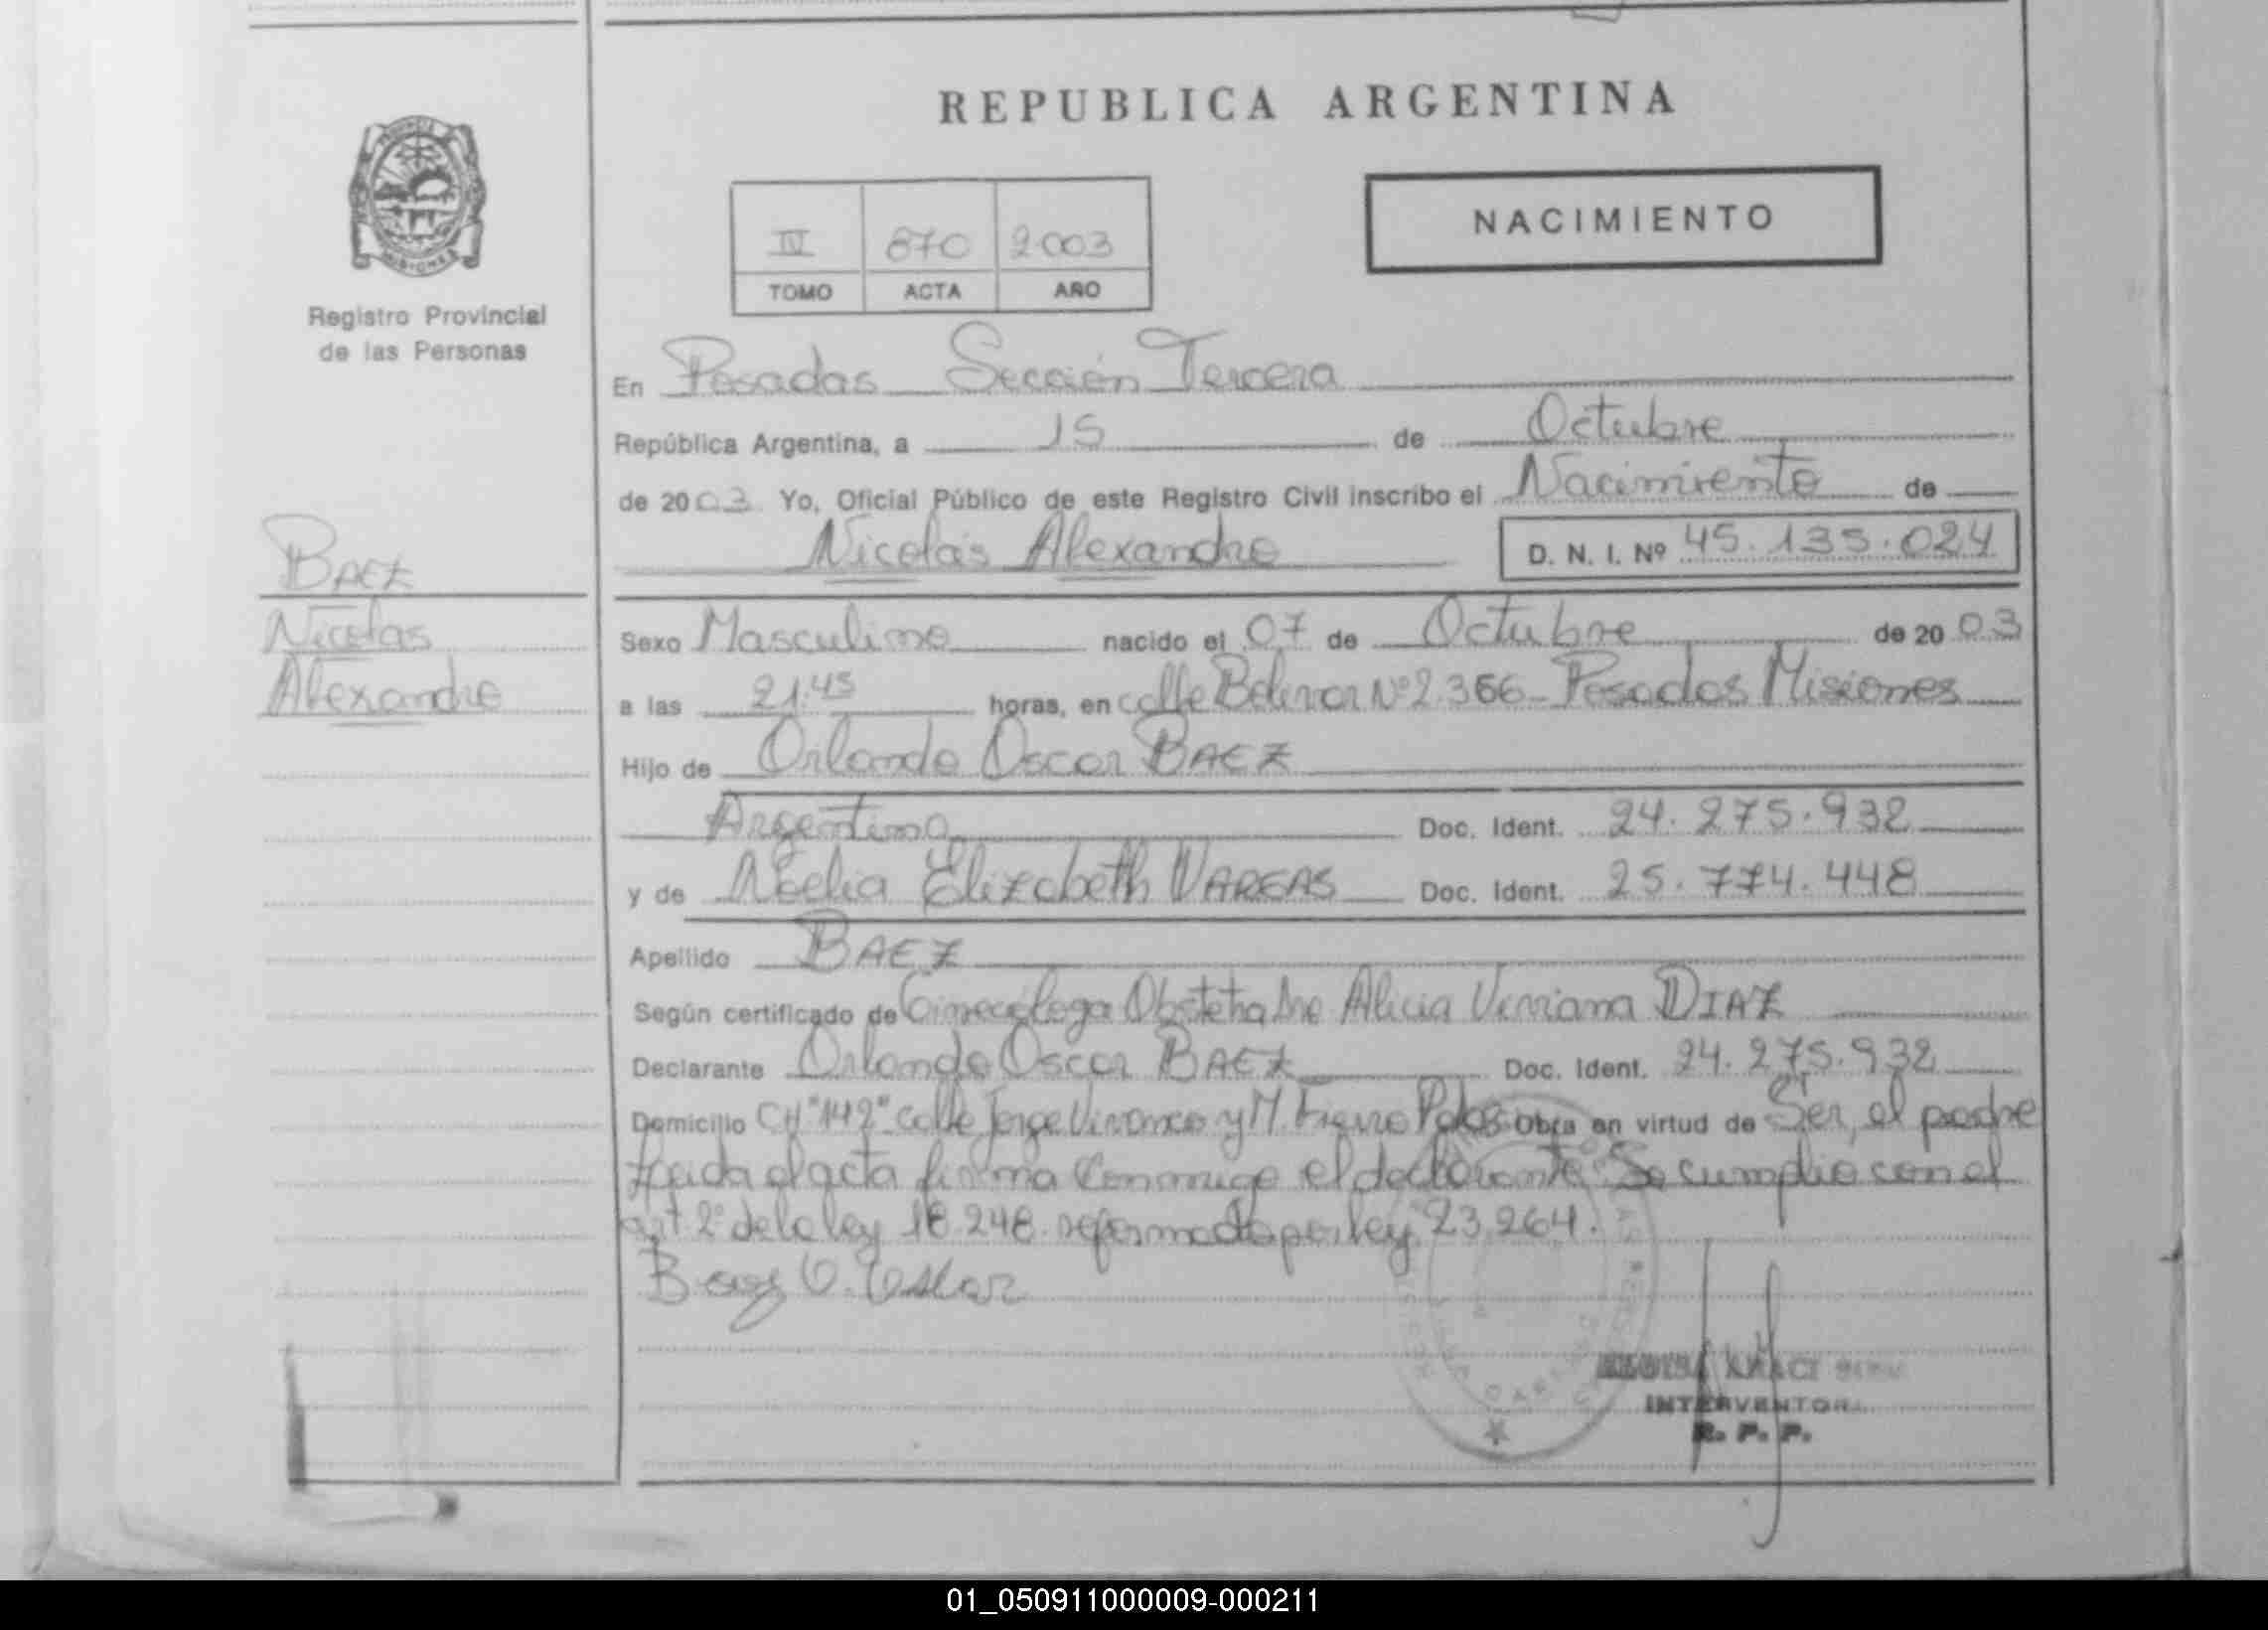 REPUBLICA ARGENTINA
NACIMIENTO
IV 670 2.003
TOMO ACTA AÑO
Registro Provincial
de las Personas
En Posadas Sección Tercera
República Argentina, a 15 de Octubre
de 2003 Yo, Oficial Público de este Registro Civil inscribo el Nacimiento de
Nicolás Alexandro D. N. I. Nº 45.135.024
BAEZ
Nicolas
Alexandro
Sexo Masculino nacido el 07 de Octubre de 2003
a las 21.45 horas, en calle Bolivar Nº 2.366 - Posadas Misiones
Hijo de Orlando Oscar BAEZ
Argentino Doc. Ident. 24.275.932
y de Noelia Elizabeth VARGAS Doc. Ident. 25.774.448
Apellido BAEZ
Según certificado de Ginecóloga Obstetra Dra Alicia Viviana DIAZ
Declarante Orlando Oscar BAEZ Doc. Ident. 24.275.932
Domicilio CH "142" calle Jorge y M. Fierro Pdas Obra en virtud de Ser el padre
Leida el acta firma Conmigo el declarante. Se cumplio con el
art. 2º de la ley 18.248 reformada por ley 23.264.
Baez O. Oscar
INTERVENTORA
R. P. P.
01_050911000009-000211